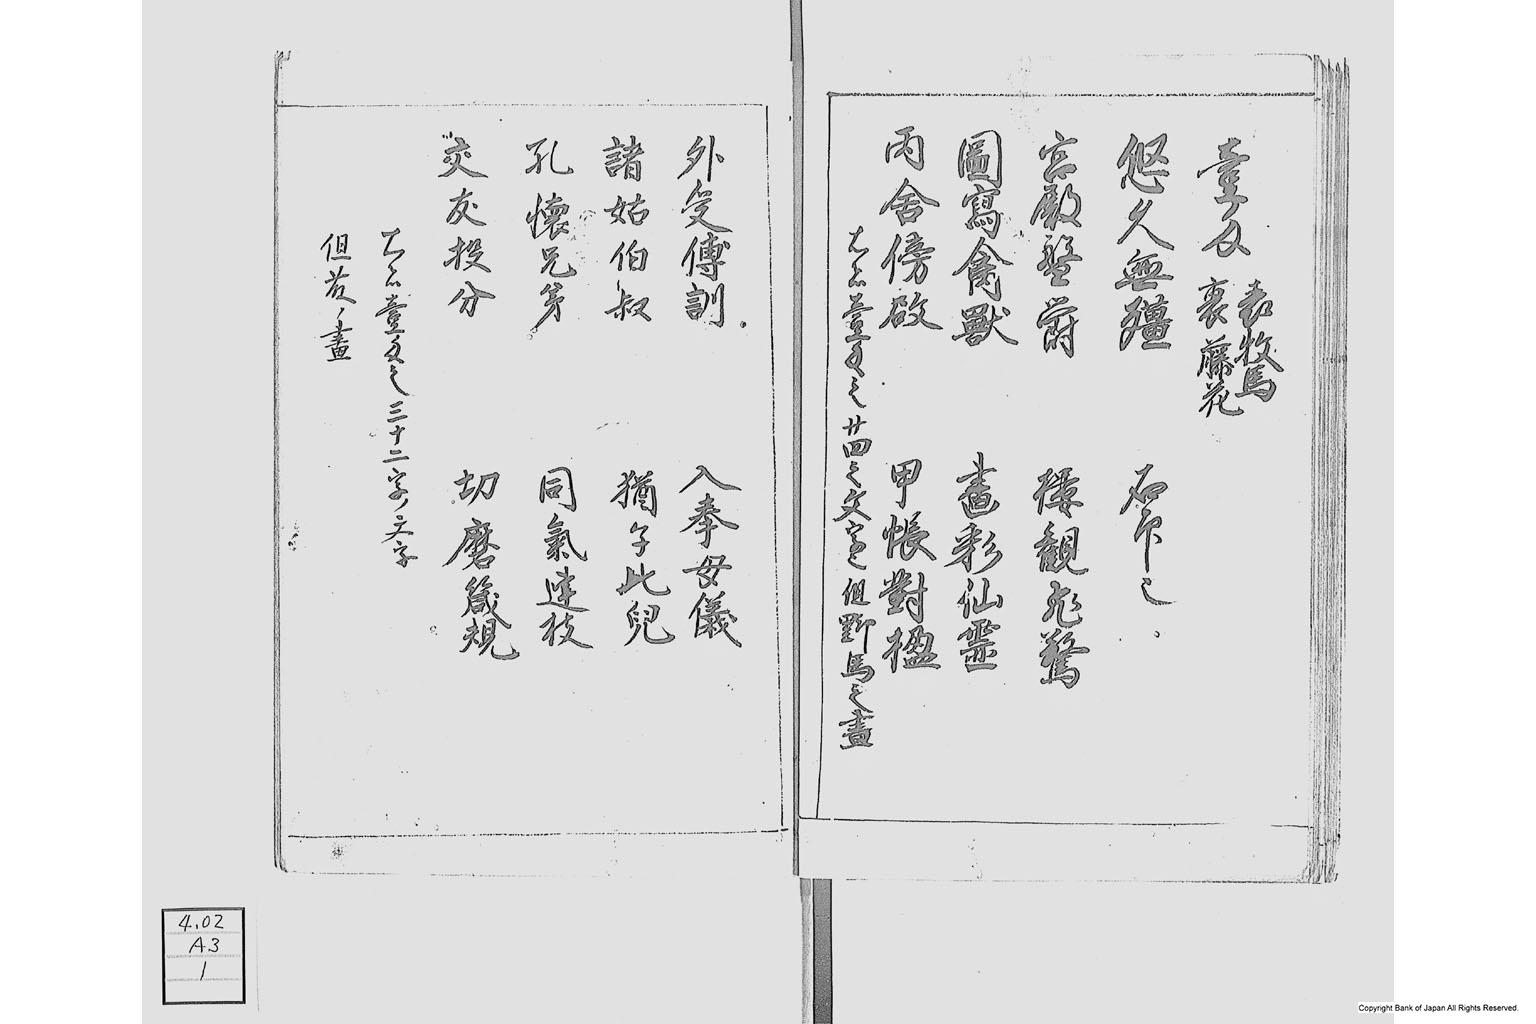 壹匁 表牧馬
裏藤花
悠久無彊 石印之
宮殿盤爵 樓観飛驚
圖寫禽獸 畫彩仙霊
丙舎傍啟 甲帳對楹
右ハ壹匁之廿四之文字也但野馬之畫
外受傅訓 入奉母儀
諸姑伯叔 猶子比兒
孔懐兄弟 同氣連枝
交友投分 切磨箴規
右ハ壹匁之三十二字ノ文字
但花ノ畫
4.02
A3
1
Copyright Bank of Japan All Rights Reserved.